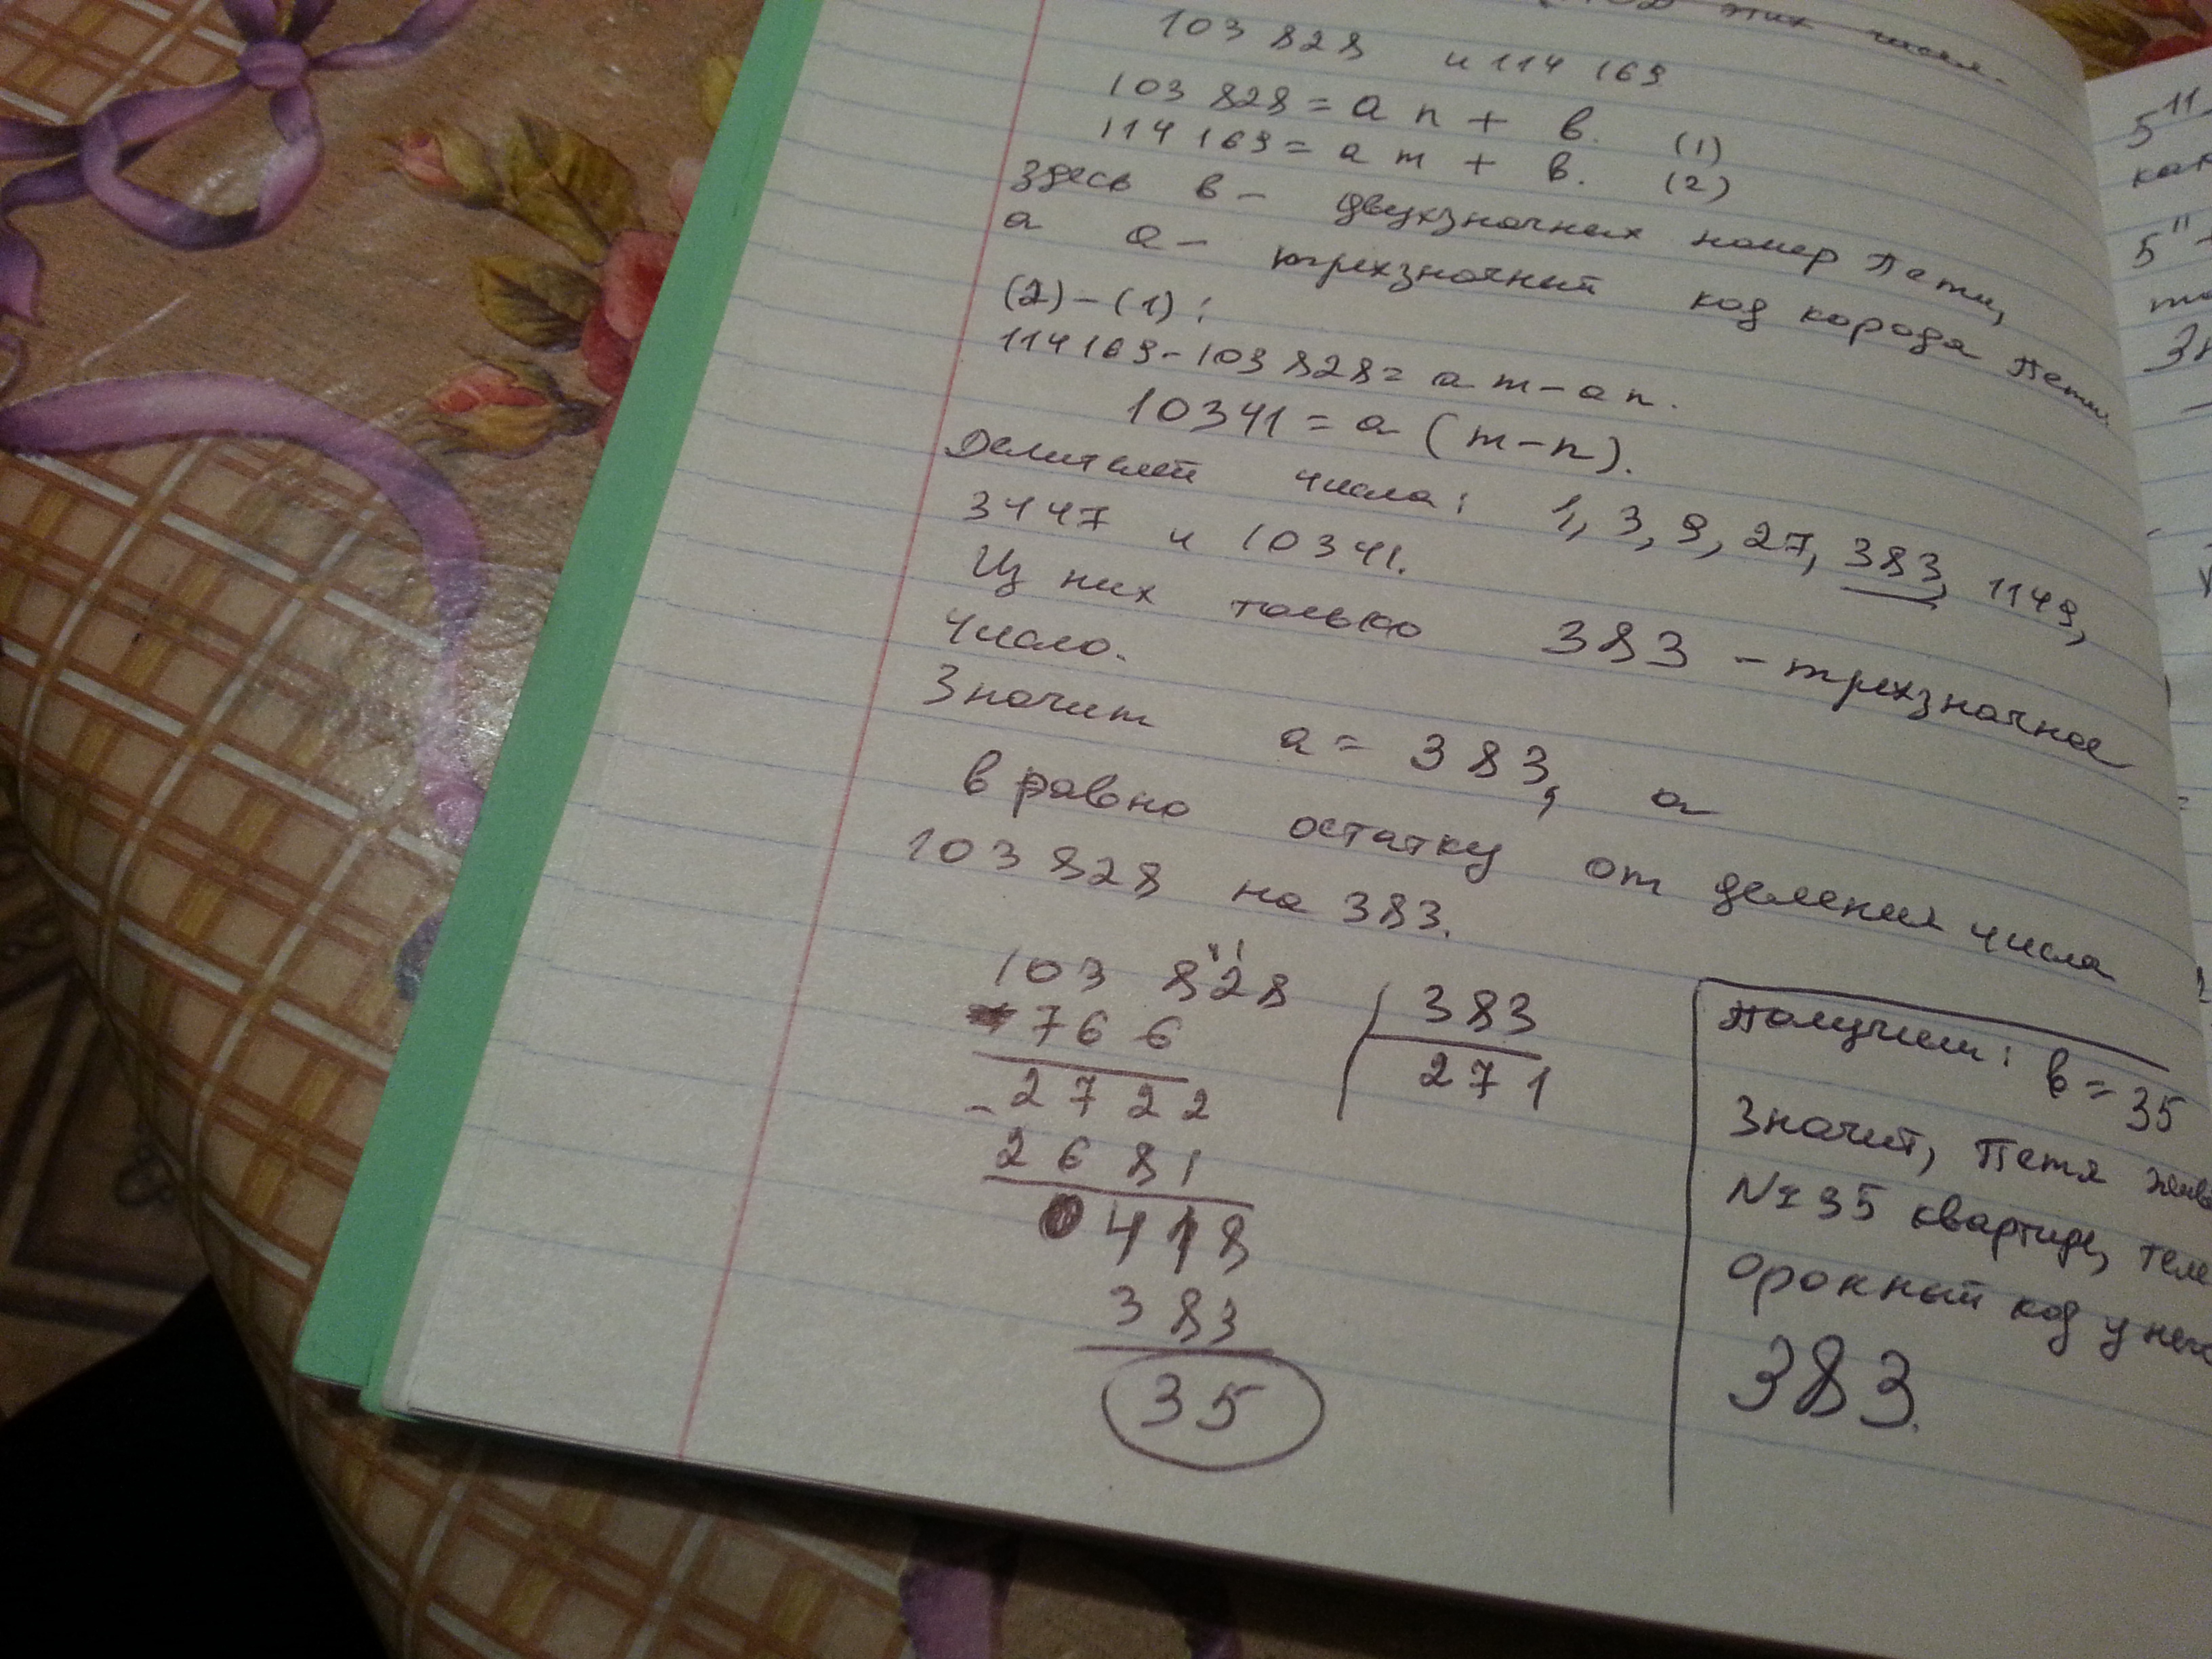 этих чисел.
103 828 и 114 169
103 828 = a n + в. (1)
114 169 = a m + в. (2)
Здесь в - двухзначных номер Пети,
а a - трехзначный код города Пети.
(2) - (1):
114169 - 103 828 = a m - a n.
10341 = a (m - n).
Делителей числа: 1, 3, 9, 27, 383, 1149,
3447 и 10341.
Из них только 383 - трехзначное
число.
Значит a = 383, а
в равно остатку от деления числа
103 828 на 383.
103 828 383
766 271
2722
- 2681
0418
383
35
Получим: в = 35
Значит, Петя
№ 35 квартире, теле
383.
5¹¹